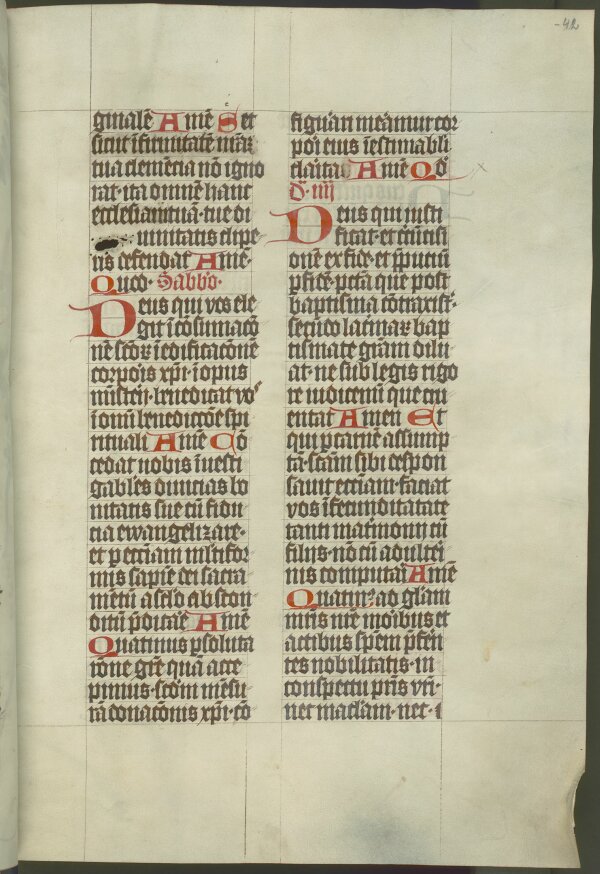 -42
ginalē Amē Et
sicut ifirmitatē
tua clemēcia nō igno
rat· ita omnē hanc
ecclesiam tuā· tue di
uinitatis clipe
us defendat Amē·
Quod· Sabbo·
Deus qui vos ele
git i cōsumacō
nē scōꝝ i edificacōne
corporis xpī· i opus
misterij· benedicat vos
i omī benedictōe spi
rituali Amē Cō
cedat nobis iuesti
gabiles diuicias bo
nitatis sue cū fidu
cia ewangelizare·
et p ecciam mltifor
mis sapiē dei sacra
mētū a sclo abscon
ditū
Quatinus psoluta
rōne grē quā acce
pimus· scdm mēsu
rā donacōnis xpī· cō
figurari meamur cor
pori eius iestimabili
claritate Amē Qd
D· iiij
Deus qui iusti
ficat· et
onē ex fide· et pputiū
pctā que post
baptisma cōtraxistꝭ·
secūdo lacrimaꝝ bap
tismate grām dilu
at· ne sub legis rigo
re iudicemi que cru
entat Amen Et
qui p carnē assump
tā· scām sibi despon
sauit ecciam· faciat
vos i fecunditatate
tanti matrimonij cū
filijs· nō cū adulteri
nis computari Amē
Quatinꝰ ad glam
mris nre moribus et
actibus spem pferen
tes nobilitatis· in
conspectu pris vri·
nec maclam· nec· i